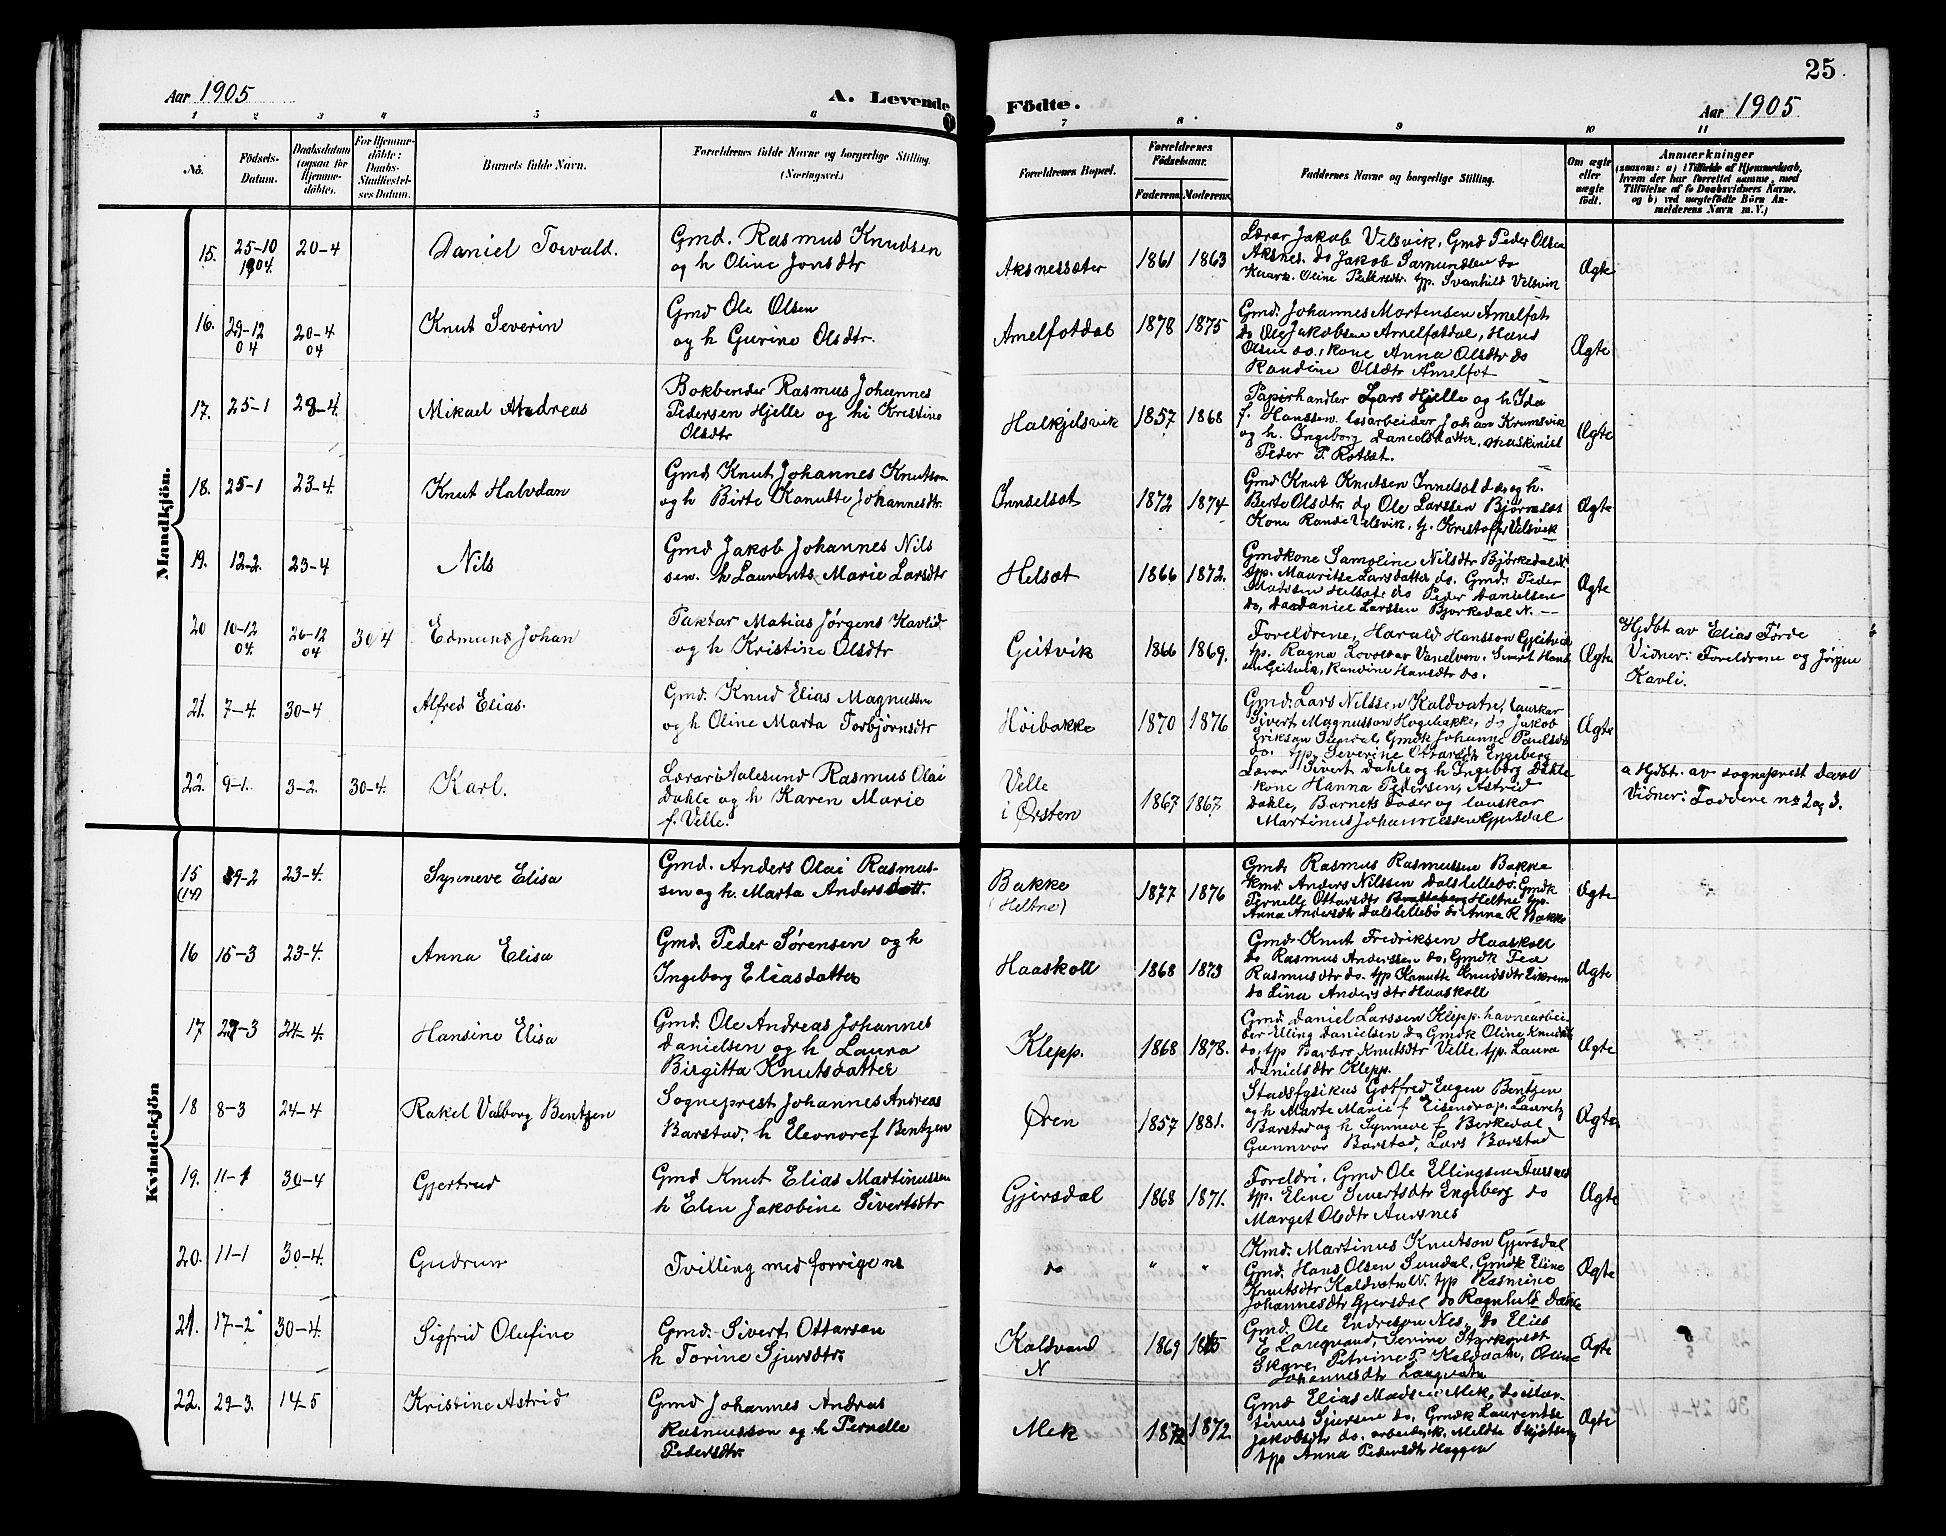 25
Aar 1905
A. Levende
Födte.
Aar 1905
1 2 3 4 5 6 7 8 9 10 11
No.
Födsels-
Datum.
Daabsdatum
(ogsaa for
Hjemme-
döbte).
For Hjemme-
döbte:
Daabs-
Stadfæstel-
ses Datum.
Barnets fulde Navn.
Forældrenes fulde Navne og borgerlige Stilling.
(Næringsvei.)
Forældrenes Bopæl.
Forældrenes
Födselsaar.
Faderens Moderens
Faddernes Navne og borgerlige Stilling.
Om ægte
eller
uægte
födt.
Anmærkninger
(saasom: a) i Tilfælde af Hjemmedaab,
hvem der har forrettet samme, med
Tilföielse af to Daabsvidners Navne,
og b) ved uægtefödte Börn An-
melderens Navn m. V.)
Mandkjön.
15. 25-10 1904. 20-4 Daniel Torvald.
Gmd. Rasmus Knudsen
og h Oline Jonsdtr
Aksnessæter 1861 1863
Lærar Jakob Velsvik, Gmd Peder Olsen
Aksnes. do Jakob Samundsen do
Kaark. Oline Pedersdtr tp. Svanhild Velsvik
Ægte
16. 29-12 04 20-4 04 Knut Severin
Gmd Ole Olsen
og h Gurine Olsdtr.
Amelfotdal 1878 1875
Gmd. Johannes Mortensen Amelfot
do Ole Jakobsen Amelfotdal, Hans
Olsen do., Kone Anna Olsdtr do
Randine Olsdtr Amelfot
Ægte
17. 25-1 29-4. Mikael Andreas
Bokbender Rasmus Johannes
Pedersen Hjelle og h Kristine
Olsdtr
Halkjelsvik 1857 1868
Papirhandler Lars Hjelle og h Ida
f. Hanssen. losarbeider Johan Krumsvik
og h. Ingeborg Danielsdatter, maskinist
Peder P. Rotset.
Ægte
18. 25-1 23-4. Knut Halvdan
Gmd. Knut Johannes Knutsen
og h Birte Kanutte Johannesdtr.
Innselset 1872 1874
Gmd Knut Knutsen Innselset do og h.
Berte Olsdtr do Ole Larssen Bjørneset
Kone Rande Velsvik, tj. Kristoffer Velsvik
Ægte
19. 12-2. 23-4 Nils
Gmd Jakob Johannes Nils
sen. h Laurents Marie Larsdtr
Helset 1866 1872.
Gmdkone Samoline Nilsdtr Bjørkedal N
tp. Mauritse Larsdatter do. Gmd: Peder
Madssen Helset do Peder Danielsen
do, do Daniel Larssen Bjorkedal N.
Ægte
20 10-12 04. 26-12 04 30 4 Edmund Johan
Faktor Matias Jørgens Kavlid
og h Kristine Olsdtr
Geitvik 1866 1869.
Foreldrene, Harald Hansson Gjeitvik
tp. Ragna Lovolær Vanelven. Sivert Hans
Geitvik, Randine Hansdtr do.
Ægte
Hjdbt av Elias Førde
Vidner: Foreldrene og Jørgen
Kavli.
21. 7-4. 30-4 Alfred Elias.
Gmd. Knud Elias Magnussen
og h Oline Marta Torbjørnsdtr
Høibakke 1870 1876
Gmd. Lars Nilssen Kaldvatn, lauskar
Sivert Magnusson Hogebakke, do Jakob
Erikson Sundal, Gmdk Johanne Paulsdtr
do. tp Severine Ottarsdtr Engeberg
Ægte
22. 9-1. 3-2. 30-4. Karl.
Lærar i Aalesund Rasmus Olai
Dahle og h Karen Marie
f. Velle.
Velle
i Ørsten 1867 1867
Lærar Sivert Dahle og h Ingeborg Dahle
kone Hanna Pedersen, Astrid
Dahle, Barnets Fader og lauskar
Martinus Johannessen Gjersdal
a Hjdbt. av sogneprest Devol
Vidner: Faddere nr 2 og 3.
Kvindekjön
15 (14) 29-2 23-4. Synneve Elisa
Gmd. Anders Olai Rasmus-
sen og h. Marta Andersdatt.
Bakke
(Heltne) 1877 1876
Gmd. Rasmus Rasmussen Bakke
Kmd. Anders Nilssen Dalslillebø. Gmdk
Pernelle Ottarsdtr Heltne tp.
Anna Andersdtr Dalslillebø do Anna R. Bakke
Ægte
16 15-3 23-4. Anna Elisa
Gmd. Peder Sørensen og h
Ingeborg Eliasdatter
Haaskoll 1868 1873
Gmd. Knut Fredriksen Haaskoll
do Rasmus Anderssen do, Gmdk Pea
Rasmusdtr do. tp Kanutte Knudsdtr Eikrem
do Lina Andersdtr Haaskoll
Ægte
17 27-3 24-4. Hansine Elisa
Gmd. Ole Andreas Johannes
Danielsen og h Laura
Birgitta Knutsdatter
Klepp. 1868 1878.
Gmd. Daniel Larssen Klepp. havnearbei-
der Elling Danielsen do Gmdk Oline Knudsdtr
do. tp Barbro Knutsdtr Velle, tp. Laura
Danielsdtr Klepp.
Ægte
18 8-3 24-4 Rakel Valborg Bentzen
Sogneprest Johannes Andreas
Barstad, h Eleonore f Bentzen
Øren 1857 1881.
Stadsfysikus Gotfred Eugen Bentzen
og h Marte Marie f Eisendrap, Lauretz
Barstad og h Synneve f Berkedal
Gunnvor Barstad, Lars Barstad
Ægte
19. 11-1 30-4 Gjertrud
Gmd Knut Elias Martinussen
h Elen Jakobine Sivertsdtr
Gjersdal 1868 1871.
Foreldri, Gmd Ole Ellingsen Aursnes
tp. Eline Sivertsdtr Engeberg do
Marget Olsdtr Aursnes
Ægte
20. 11-1 30-4. Gudrun
Tvilling med forrige nr
do " "
Kmd. Martinus Knutson Gjersdal
Gmd. Hans Olsen Sundal, Gmdk Eline
Knutsdtr Kaldvatn N. tp Rasmine
Johannesdtr Gjersdal do Ragnhild Dahle
Ægte
21. 17-2 30-4. Sigfrid Olufine
Gmd. Sivert Ottarson
h Torine Sjursdtr.
Kaldvand
N 1869
Gmd. Ole Endreson Nes, do Elias
E Langvand, Sevine Styrkorsdt
Skare, Petrine P. Kaldvatn, Oline
Johannesdtr Langvatn
Ægte
22. 29-3. 14-5 Kristine Astrid
Gmd Johannes Andreas
Rasmusson og h Pernelle
Pedersdtr.
Mek 1872 1872.
Gmd Elias Madsen Mek, do Mar-
tinus Sjursen do, Gmdk Laurentse
Jakobsdtr do. arbeidsk. Meldte Skjetseng
tp Anna Pedersdtr Heggen
Ægte